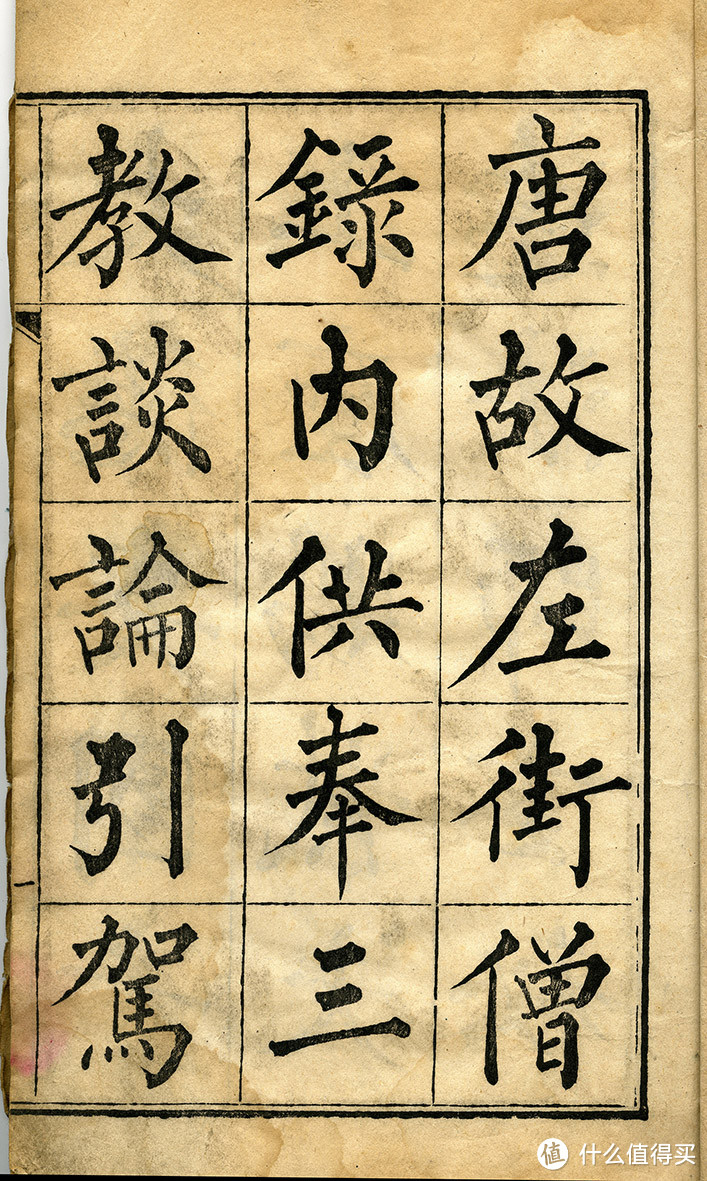 唐故左街僧
錄内供奉三
教談論引駕
一
值 什么值得买